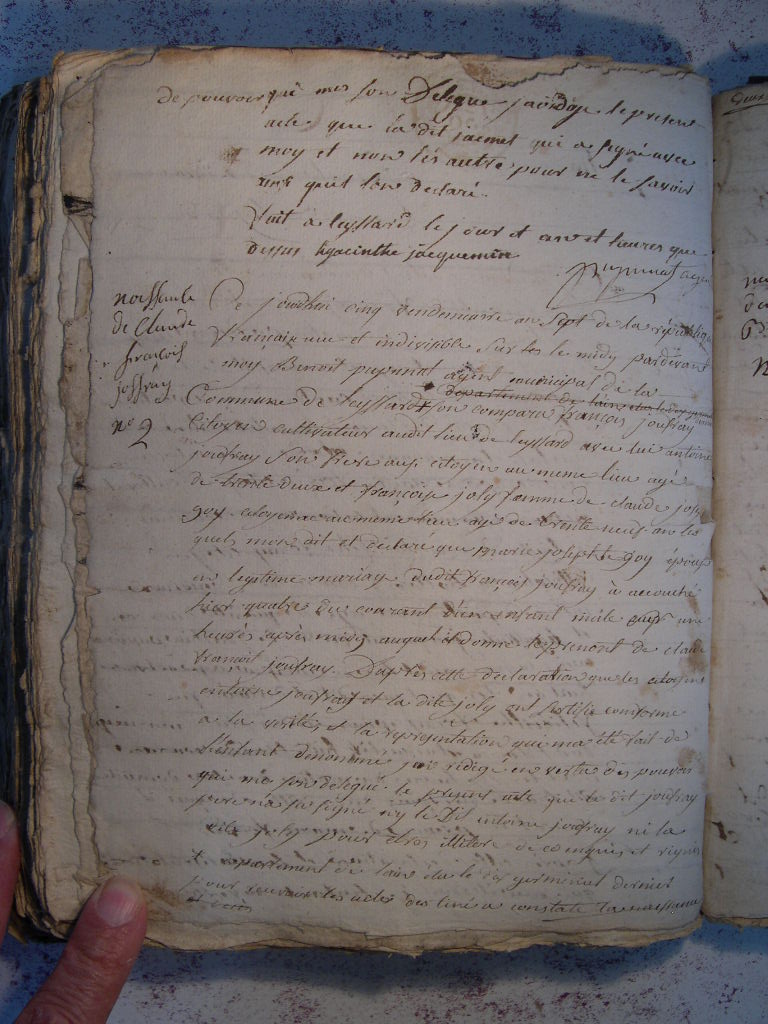 De pouvoir qui mes son Delegue jai redige le presen
acte que la dit jacmet qui a signé avec
moy et non les autre pour ne le savoir
qu'il lon declaré.
Fait a leyssard le jour et an et heures que
dessus hyacinthe jacquemin
naissance
de Claude
françois
joffray
n° 2
Ce jourdhui cinq vendemiaire an sept de la républiq
francaize une et indivisible sur les le midy pardevant
moy Benoit pupunat agent municipal de la
departement de lain
Commune de leyssard + son comparu françois joufray
Citoyen cultivateur audit lieu de leyssard avec lui antoine
joufray son frere ausi citoyen au meme lieu agé
de trente deux et françoise joly famme de claude
goy citoyenne au meme lieu age de trente neuf an les
quels mon dit et déclaré que marie josepte goy épouse
en legitime mariage dudit françois joufray à accouché
hier quatre du courant d'un enfant male une
heures après midy auquel il donne le prenont de claude
francoit joufray. D'après cette declaration que les citoyens
antoine joufray et la dite joly ont sertifié comforme
a la verité et la représentation qui ma été fait de
l'enfant dénommé jai redigé en vertu des pouvoirs
qui mon son delegué le present acte que le dit joufray
pere na su signé n'y le Dit antoine joufray ni la
dite joly pour etres illitere de ce enquis et
+ departement de lain du le germinal dernier
pour les actes destiné a constate la naissance
et deces